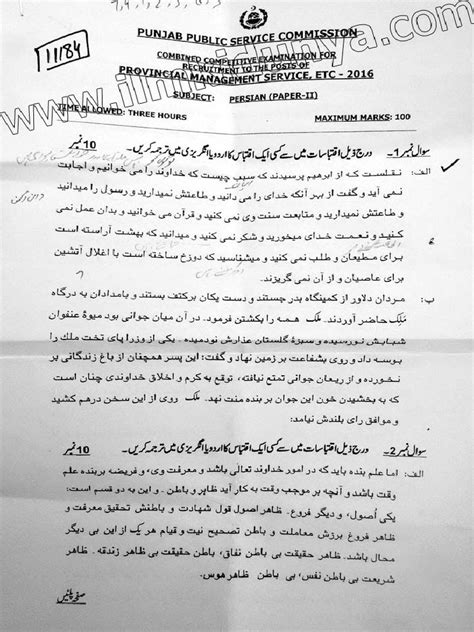 11184
PUNJAB PUBLIC SERVICE COMMISSION
COMBINED COMPETITIVE EXAMINATION FOR
RECRUITMENT TO THE POSTS OF
PROVINCIAL MANAGEMENT SERVICE, ETC - 2016
SUBJECT: PERSIAN (PAPER-II)
TIME ALLOWED: THREE HOURS MAXIMUM MARKS: 100
www.ilmkidunya.com
سوال نمبر 1۔ درج ذیل اقتباسات میں سے کسی ایک اقتباس کا اردو یا انگریزی میں ترجمہ کریں۔ 10 نمبر
الف: نقلست که از ابرهیم پرسیدند که سبب چیست که خداوند را می خوانیم و اجابت
نمی آید و گفت از بهر آنکه خدای را می دانید و طاعتش نمیدارید و رسول را میدانید
و طاعتش نمیدارید و متابعت سنت وی نمی کنید و قرآن می خوانید و بدان عمل نمی
کنید و نعمت خدای میخورید و شکر نمی کنید و میدانید که بهشت آراسته است
برای مطیعان و طلب نمی کنید و میشناسید که دوزخ ساخته است با اغلال آتشین
برای عاصیان و از آن نمی گریزند.
ب: مردان دلاور از کمینگاه بدر جستند و دست یکان برکتف بستند و بامدادان به درگاه
ملک حاضر آوردند. ملک همه را بکشتن فرمود. در آن میان جوانی بود میوهٔ عنفوان
شبابش نورسیده و سبزهٔ گلستان عذارش نودمیده . یکی از وزرا پای تخت ملک را
بوسه داد و روی بشفاعت بر زمین نهاد و گفت: این پسر همچنان از باغ زندگانی بر
نخورده و از ریعان جوانی تمتع نیافته، توقع به کرم و اخلاق خداوندی چنان است
که به بخشیدن خون این جوان بر بنده منت نهد. ملک روی از این سخن درهم کشید
و موافق رای بلندش نیامد:
سوال نمبر 2۔ درج ذیل اقتباسات میں سے کسی ایک اقتباس کا اردو یا انگریزی میں ترجمہ کریں۔ 10 نمبر
الف: اما علم بنده باید که در امور خداوند تعالی باشد و معرفت وی، و فریضه بربنده علم
وقت باشد و آنچه بر موجب وقت به کار آید ظاهر و باطن . و این به دو قسم است:
یکی اُصول، و دیگر فروع. ظاهر اصول قول شهادت و باطنش تحقیق معرفت و
ظاهر فروغ برزش معاملت و باطن تصحیح نیت و قیام هر یک از این بی دیگر
محال باشد. ظاهر بی باطن نفاق، باطن حقیقت بی ظاهر زندقه . ظاهر
شریعت بی باطن نفس، بی باطن ظاهر هوس.
صفحہ پلٹیں